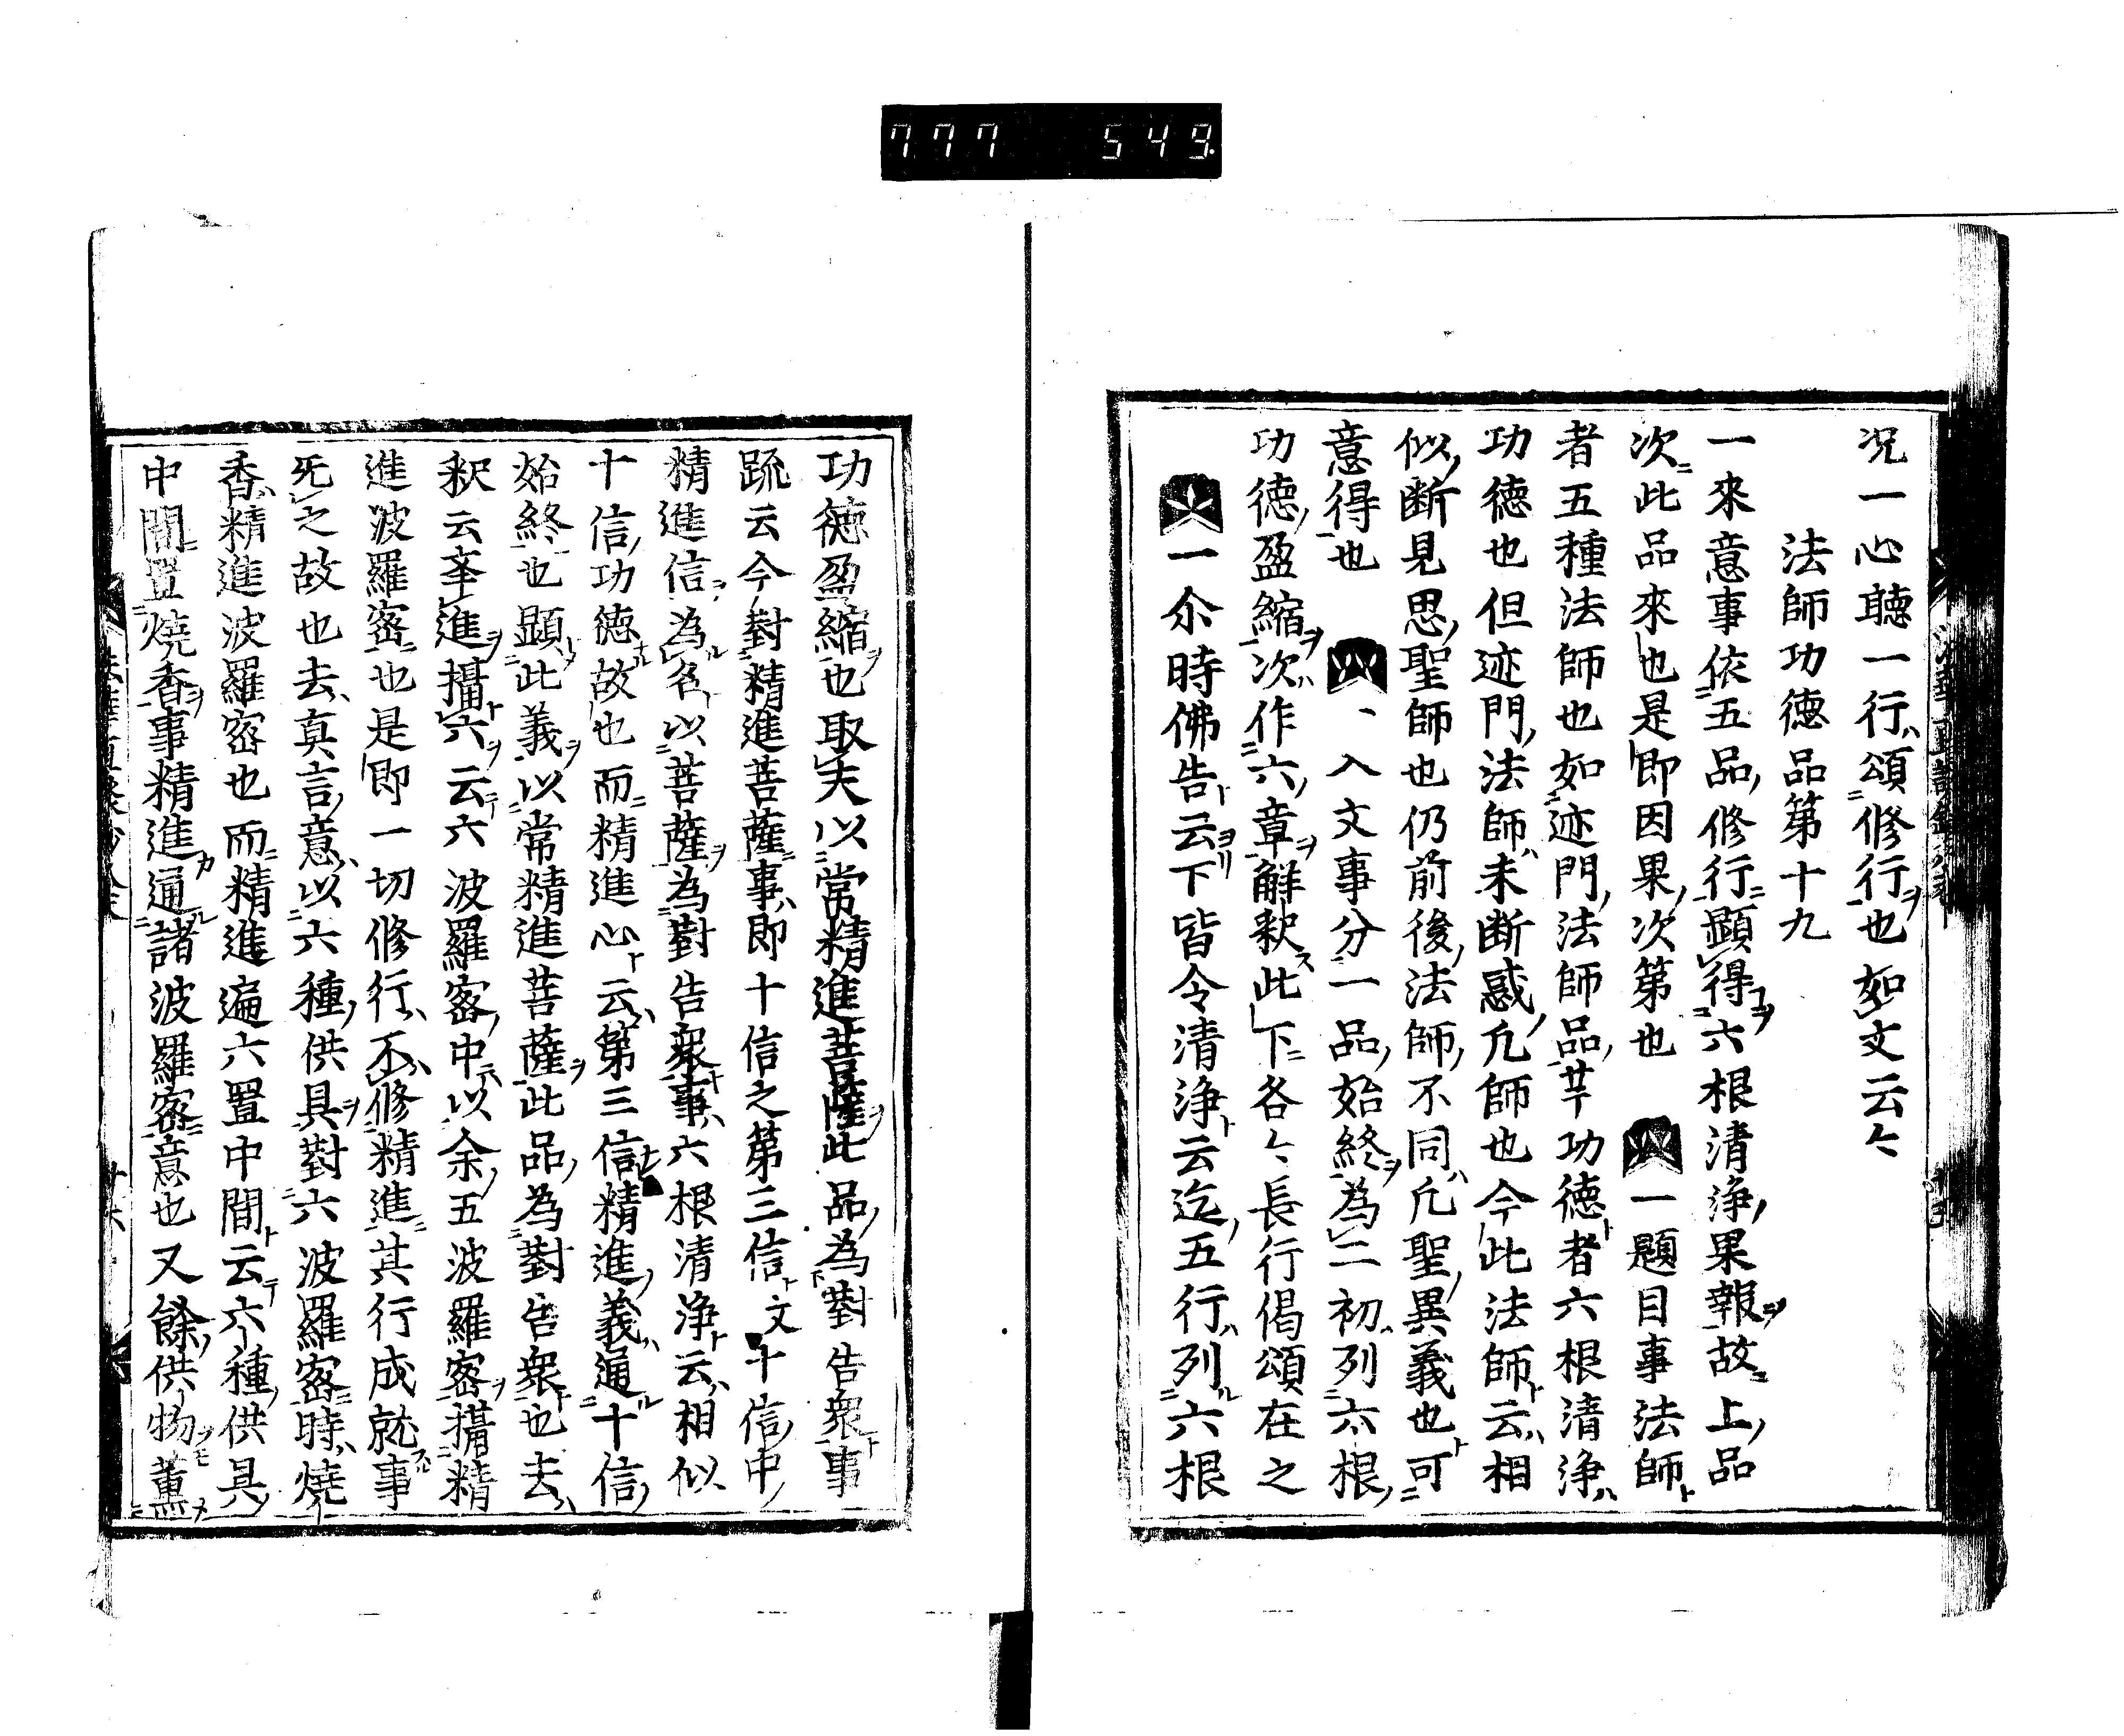 777 549
況一心聴一行、頌修行也如文云々
法師功徳品第十九
一來意事依五品修行顕得六根清浄果報故上品
次此品來也是即因果次第也 一題目事法師
者五種法師也如迹門法師品廿功徳者六根清浄
功徳也但迹門法師未断惑凡師也今此法師云相
似断見思聖師也仍前後法師不同凡聖異義也可
意得也 一、入文事分一品始終為二初列六根
功徳盈縮次作六章解釈此下各々長行偈頌在之
一尓時佛告云下皆令清浄云迄五行列六根
功徳盈縮也取夫以常精進菩薩此品為對告衆事
䟽云今對精進菩薩事即十信之第三信文十信中
精進信為名以菩薩為對告衆事六根清浄云相似
十信功徳故也而精進心云第三信精進義通十信
始終也顕此義以常精進菩薩此品為對告衆也去
釈云挙進摂六云六波羅密中以余五波羅密摂精
進波羅密也是即一切修行不修精進其行成就事
旡之故也去真言意以六種供具對六波羅密時燒
香精進波羅密也而精進遍六置中間云六種供具
中間置燒香事精進通諸波羅密意也又餘供物薫